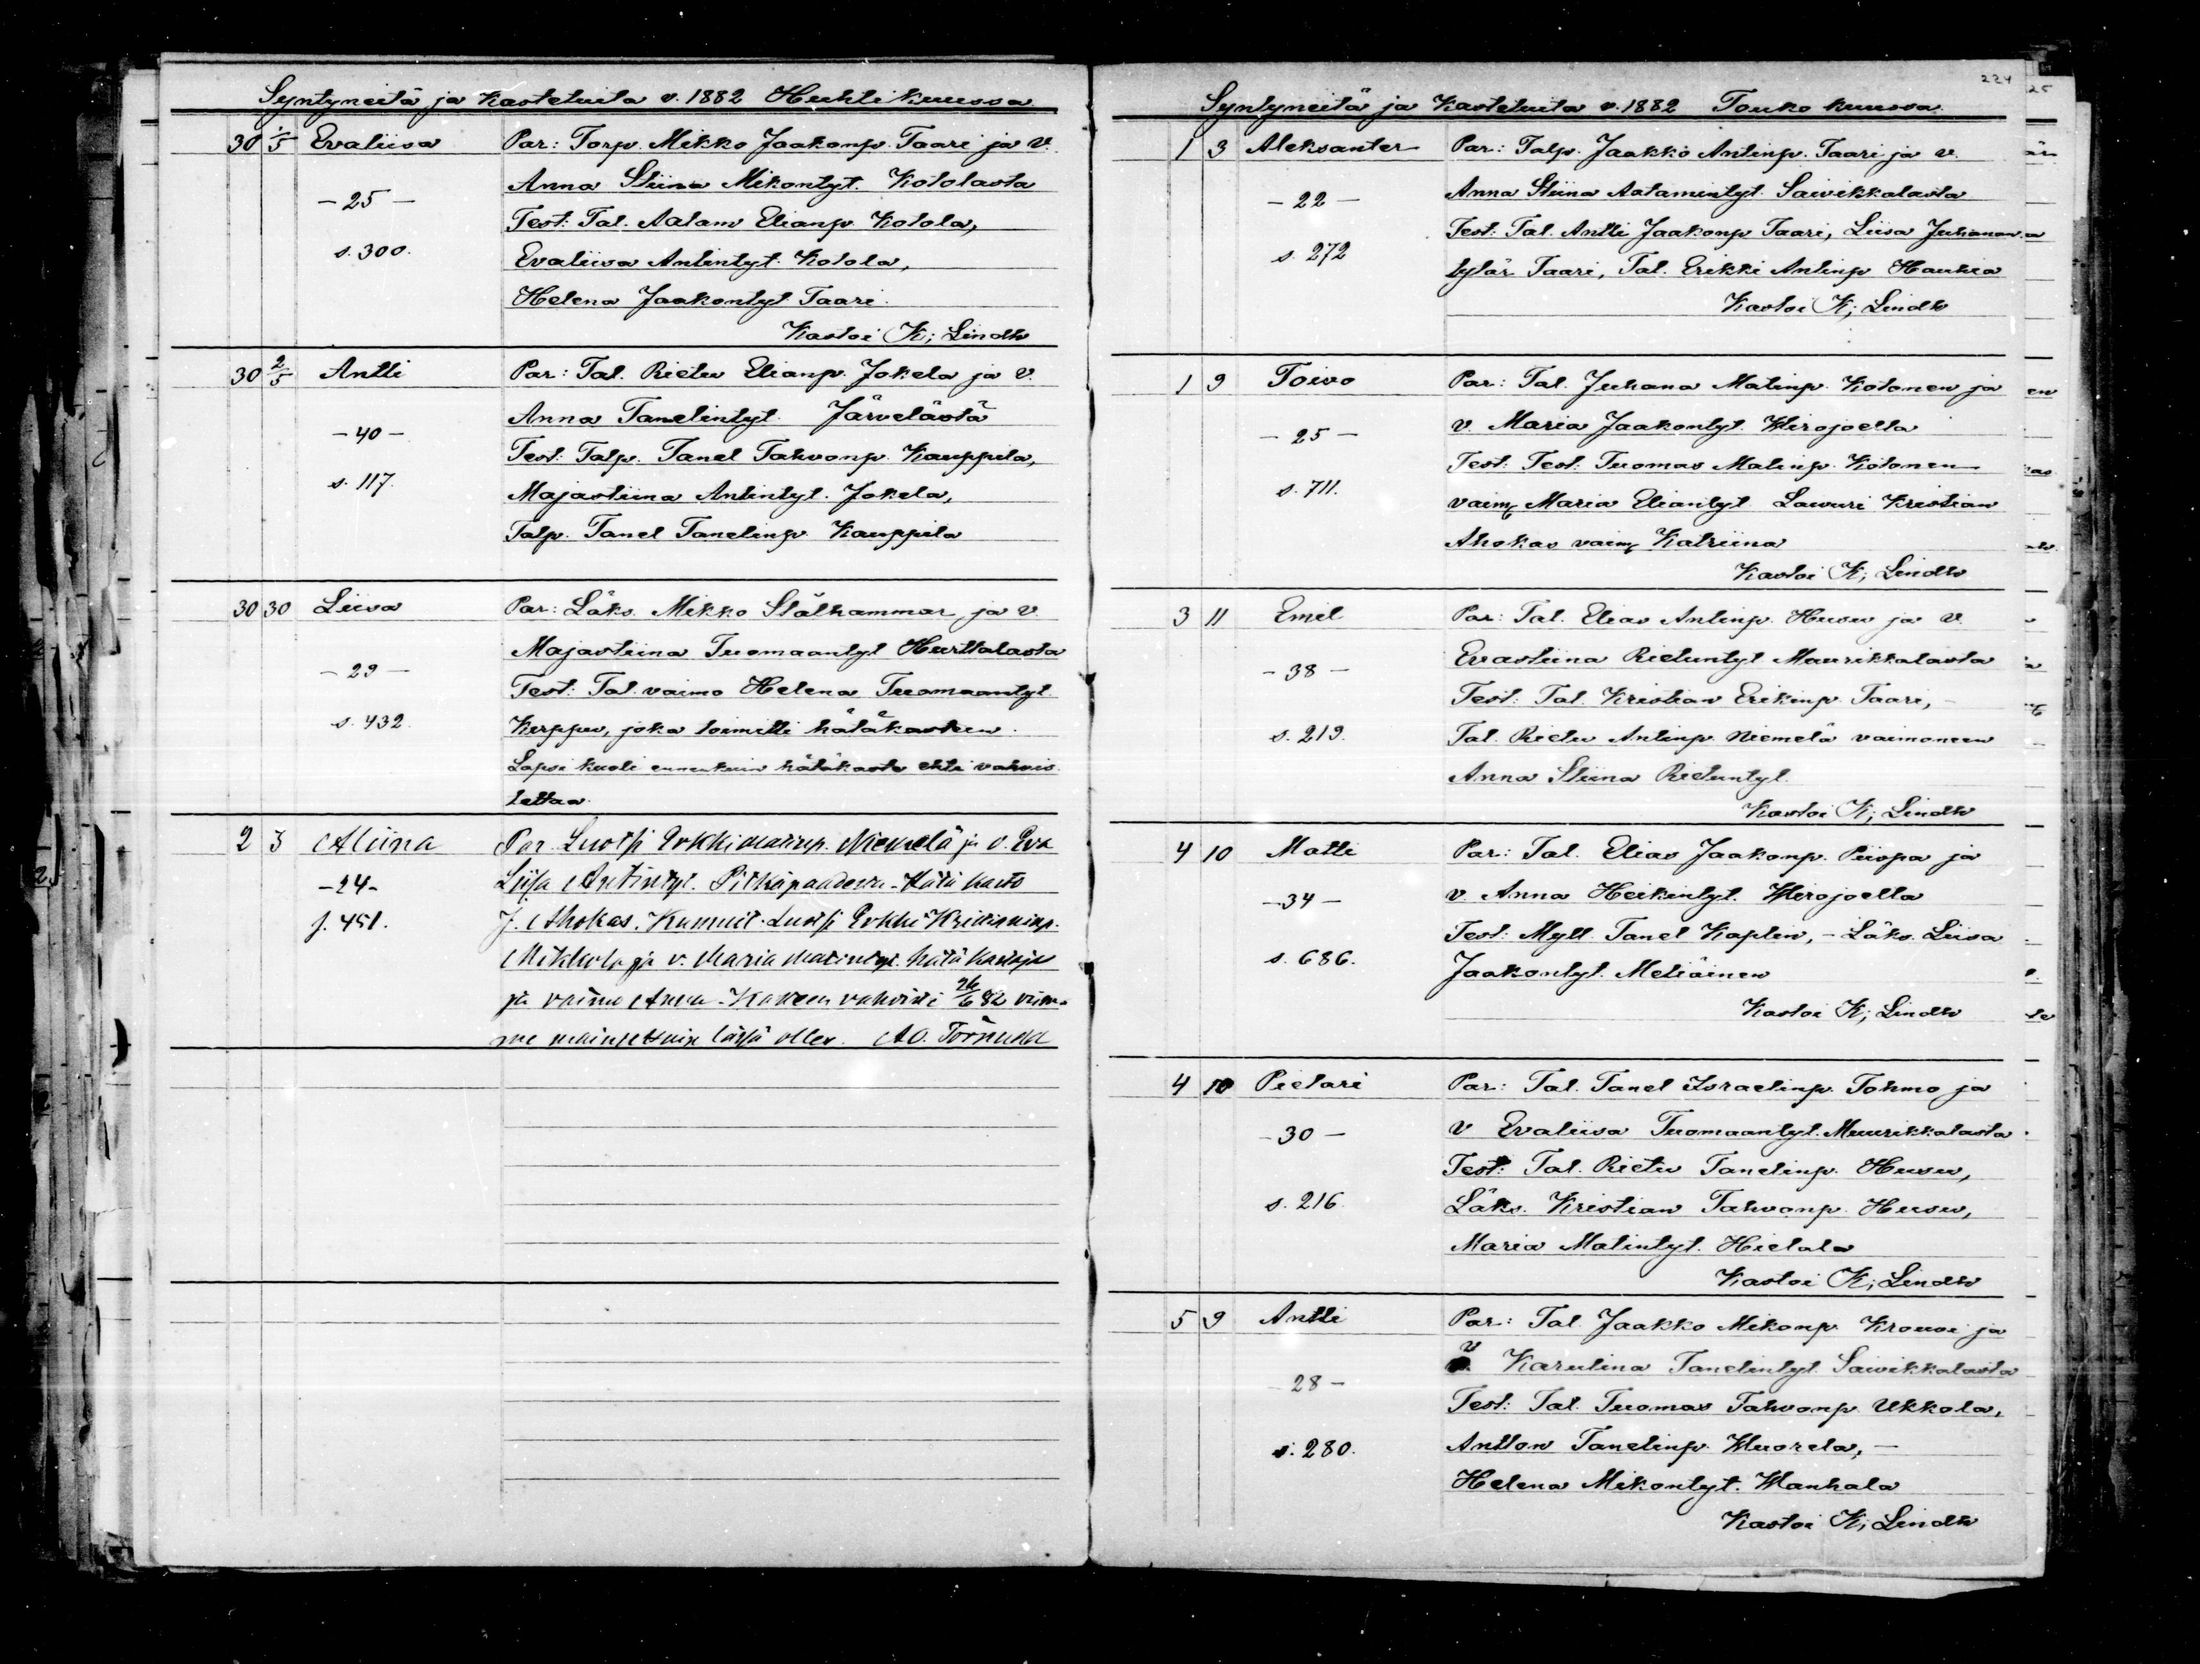 Syntyneitä ja Kastetuita v. 1882 Huhtikuussa
30 1/5 Evaliisa Par: Torp. Mikko Jaakonp. Taari ja v.
Anna Stiina Mikontyt. Kotolasta
- 25 -
Test: Tal. Aatam Elianp. Kotola,
s. 300. Evaliisa Antintyt. Kotola,
Helena Jaakontyt Taari.
Kastoi K; Lindh
30 2/5 Antti Par: Tal. Rietu Elianp. Jokela ja v.
Anna Tanelintyt. Järvelästä
- 40 -
Test: Talp. Tanel Tahvonp. Kauppila,
s. 117. Majastiina Antintyt. Jokela,
Talp. Tanel Tanelinp. Kauppila
30 30 Liisa Par: Läks. Mikko Stålhammar ja v.
Majastiina Tuomaantyt Hurttalasta
- 29 -
Test: Tal. vaimo Helena Tuomaantyt.
s. 432. Kerppu, joka toimitti hätäkasteen.
Lapsi kuoli ennenkuin hätäkaste ehti vahvis
tettaa.
2 3 Miina Par. Luotsi Erkki Matinp. Niemelä ja v. Eva
- 24 - Liisa Antintyt. Pitkäpaadesta - Hätä kaste
s. 451. J. Ahokas. Kummit. Luotsi Erkki Kristianinp.
Mikkola ja v. Maria Matintyt. hätä kastaja
ja vaimo Anna - Kasteen vahvisti 26/6 82 viim-
me mainittuin läsnä ollen. A O. Törnudd
224
Syntyneitä ja Kastetuita v. 1882 Toukokuussa.
1 3 Aleksanter Par: Talp. Jaakko Antinp. Taari ja v.
- 22 - Anna Stiina Aatamintyt. Saivikkalasta
Test: Tal. Antti Jaakonp Taari, Liisa Juhanan
s. 272 tytär Taari, Tal. Erikki Antinp Haukia
Kastoi K; Lindh
1 9 Toivo Par: Tal. Juhana Matinp. Kotonen ja
- 25 - v. Maria Jaakontyt. Wirojoelta
Test: Test: Tuomas Matinp. Kotonen
s. 711. vaim. Maria Eliantyt. Lawuri Kristian
Ahokas vaim. Katriina
Kastoi K; Lindh
3 11 Emil Par: Tal. Elias Antinp. Husu ja v.
- 38 - Evastiina Rietuntyt Muurikkalasta
Test: Tal. Kristian Erikinp Taari, -
s. 219. Tal. Rietu Antinp. Niemelä vaimoneen
Anna Stiina Rietuntyt.
Kastoi K; Lindh
4 10 Matti Par: Tal. Elias Jaakonp. Piispa ja
- 34 - v. Anna Heikintyt. Wirojoelta
Test: Myll. Tanel Kaplin, - Läks. Liisa
s. 686. Jaakontyt. Metiäinen
Kastoi K; Lindh
4 10 Pietari Par: Tal. Tanel Israelinp. Tohmo ja
- 30 - v Evaliisa Tuomaantyt. Muurikkalasta
Test: Tal. Rietu Tanelinp. Husu,
s. 216. Läks. Kristian Tahvonp. Husu,
Maria Matintyt. Hietala
Kastoi K; Lindh
5 9 Antti Par: Tal. Jaakko Mikonp. Krouvi ja
v Karulina Tanelintyt. Saivikkalasta
28 -
Test: Tal. Tuomas Tahvonp. Ukkola,
s. 280. Antton Tanelinp. Wuorela, -
Helena Mikontyt. Wanhala
Kastoi K; Lindh